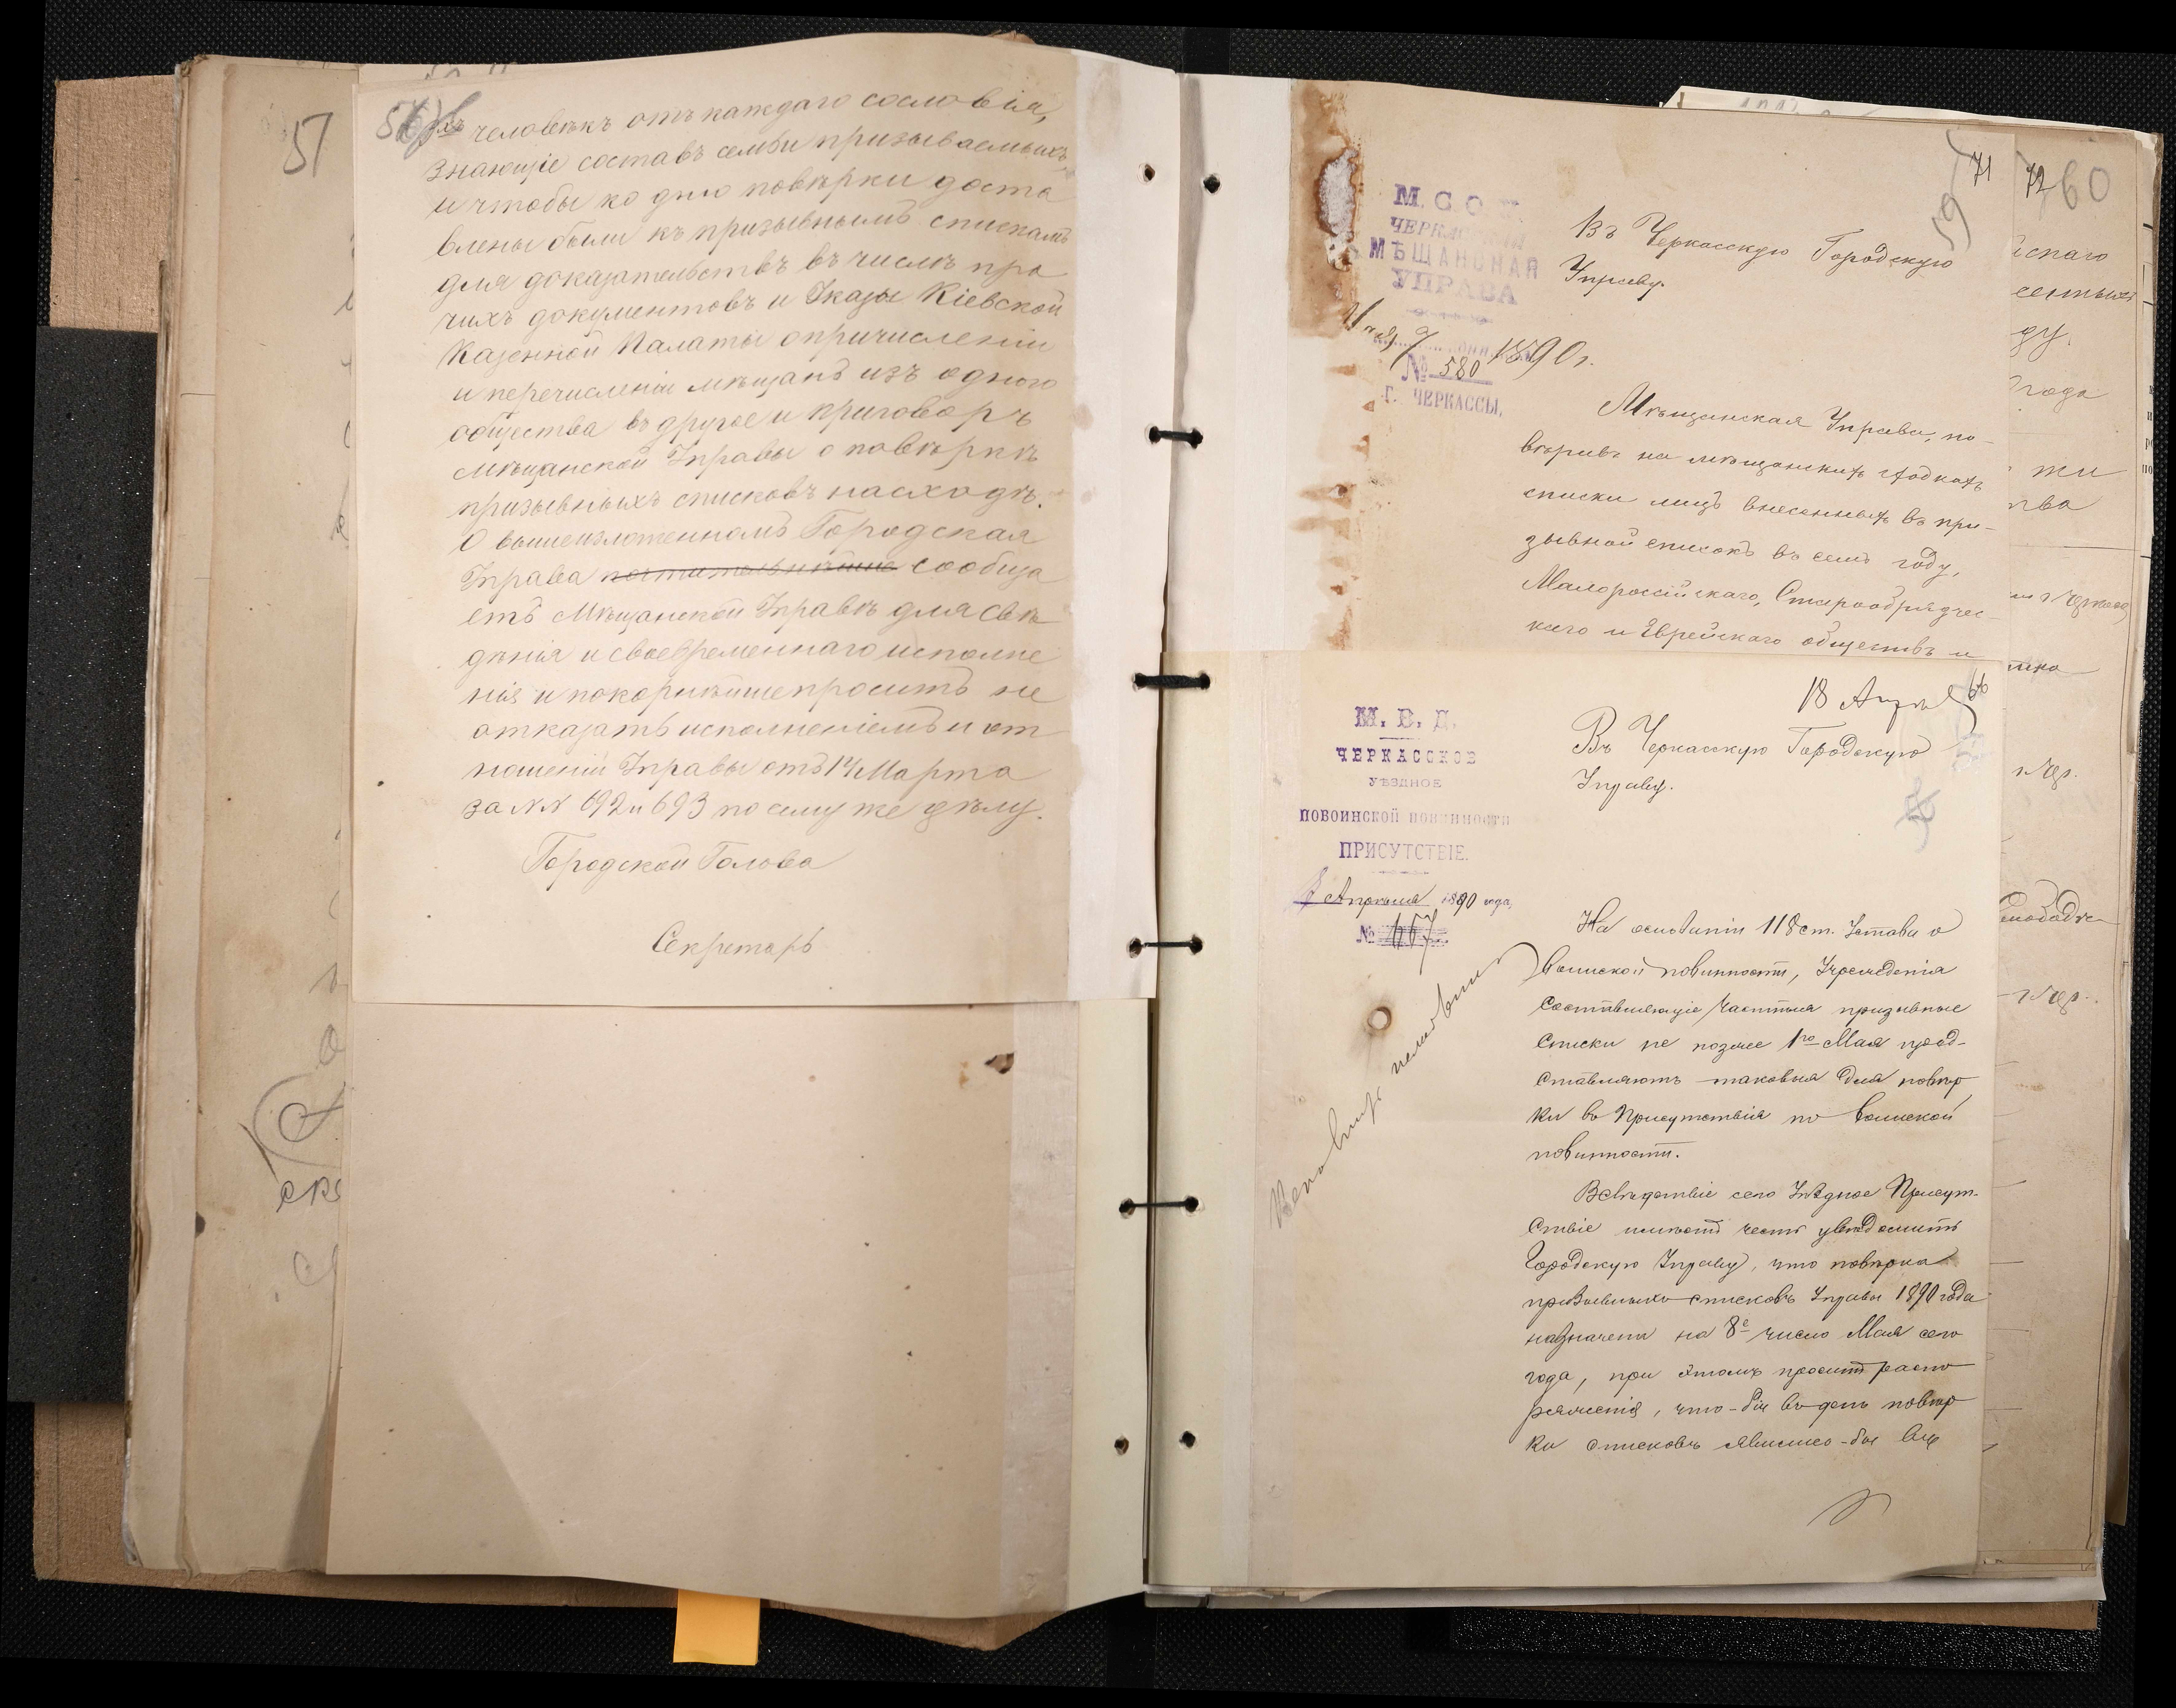 57
человѣкъ отъ каждаго сословія,
знающіе составъ семьи призываемыхъ
и чтобы ко дню повѣрки доста
влены были къ призывнымъ спискамъ
для доказательствъ въ числѣ про
чихъ документовъ и Указы Кіевской
Казенной Палаты о причисленіи
и перечисленіи мѣщанъ изъ одного
общества въ другое и приговоръ
Мѣщанской Управы о повѣркѣ
призывныхъ списковъ на сходѣ.
О вышеизложенномъ Городская
Управа почтительнѣйше сообща
етъ Мѣщанской Управѣ для свѣ
дѣнія и своевременнаго исполне
нія и покорнѣйше проситъ не
отказать исполненіемъ и от
ношеній Управы отъ 14 Марта
за NN 692 и 693 по сему же дѣлу.
Городской Голова
Секретарь
71
59
М. С. О.
ЧЕРКАССКАЯ
МѢЩАНСКАЯ
УПРАВА
9 1890 г.
№ 580
Г. ЧЕРКАССЫ.
Въ Черкасскую Городскую
Управу.
Мѣщанская Управа, по-
вѣривъ на мѣщанскихъ сходкахъ
списки лицъ внесенныхъ въ при-
зывной списокъ въ семъ году,
Малороссійскаго, Старообрядчес-
каго и Еврейскаго обществъ и
18 Апрѣля
66
М. В. Д.
ЧЕРКАССКОЕ
УѢЗДНОЕ
ПО ВОИНСКОЙ ПОВИННОСТИ
ПРИСУТСТВІЕ.
Апрѣля 1890 года,
№ 667
Въ Черкасскую Городскую
Управу.
На основаніи 118 ст. Устава о
воинской повинности, Учрежденія
составляющіе частные призывные
списки не позже 1го Мая пред-
ставляютъ таковыя для повѣр
ки въ Присутствія по воинской
повинности.
Вслѣдствіе сего Уѣздное Присут-
ствіе имѣетъ честь увѣдомить
Городскую Управу, что повѣрка
призывныхъ списковъ Управы 1890 года
назначена на 8е число Мая сего
года, при этомъ проситъ распо
ряженія, что-бы въ день повѣр
ки списковъ явились-бы
72
60
года